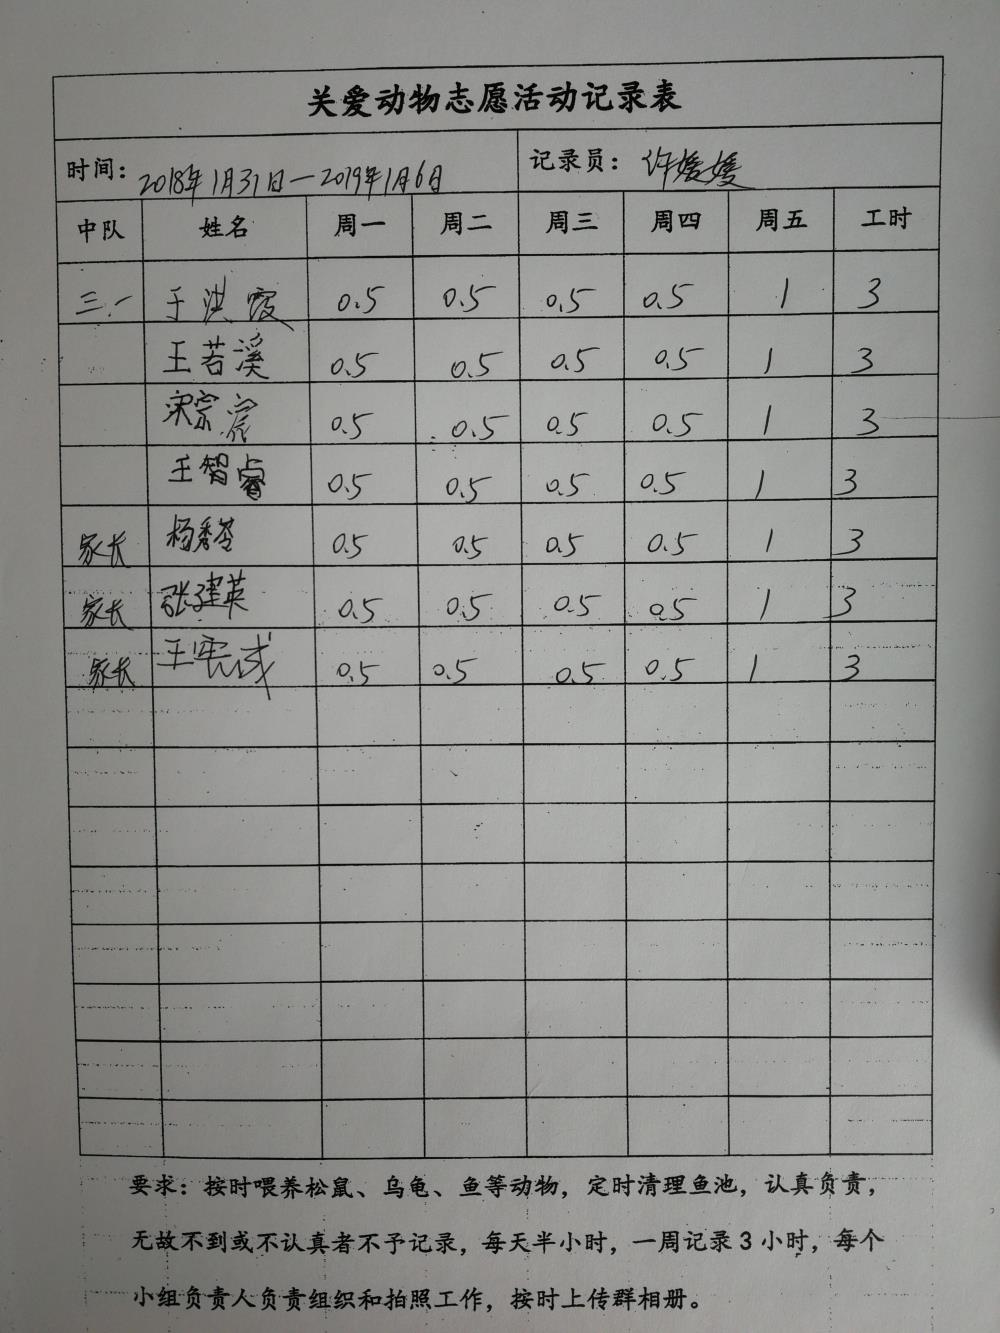 关爱动物志愿活动记录表
时间：2018年1月31日—2019年1月6日 记录员：许媛媛
中队 姓名 周一 周二 周三 周四 周五 工时
三.一 于洪霞 0.5 0.5 0.5 0.5 1 3
王若溪 0.5 0.5 0.5 0.5 1 3
宋宗宸 0.5 0.5 0.5 0.5 1 3
王智睿 0.5 0.5 0.5 0.5 1 3
家长 杨秀苓 0.5 0.5 0.5 0.5 1 3
家长 张建英 0.5 0.5 0.5 0.5 1 3
家长 王宪成 0.5 0.5 0.5 0.5 1 3
要求：按时喂养松鼠、乌龟、鱼等动物，定时清理鱼池，认真负责，
无故不到或不认真者不予记录，每天半小时，一周记录3小时，每个
小组负责人负责组织和拍照工作，按时上传群相册。